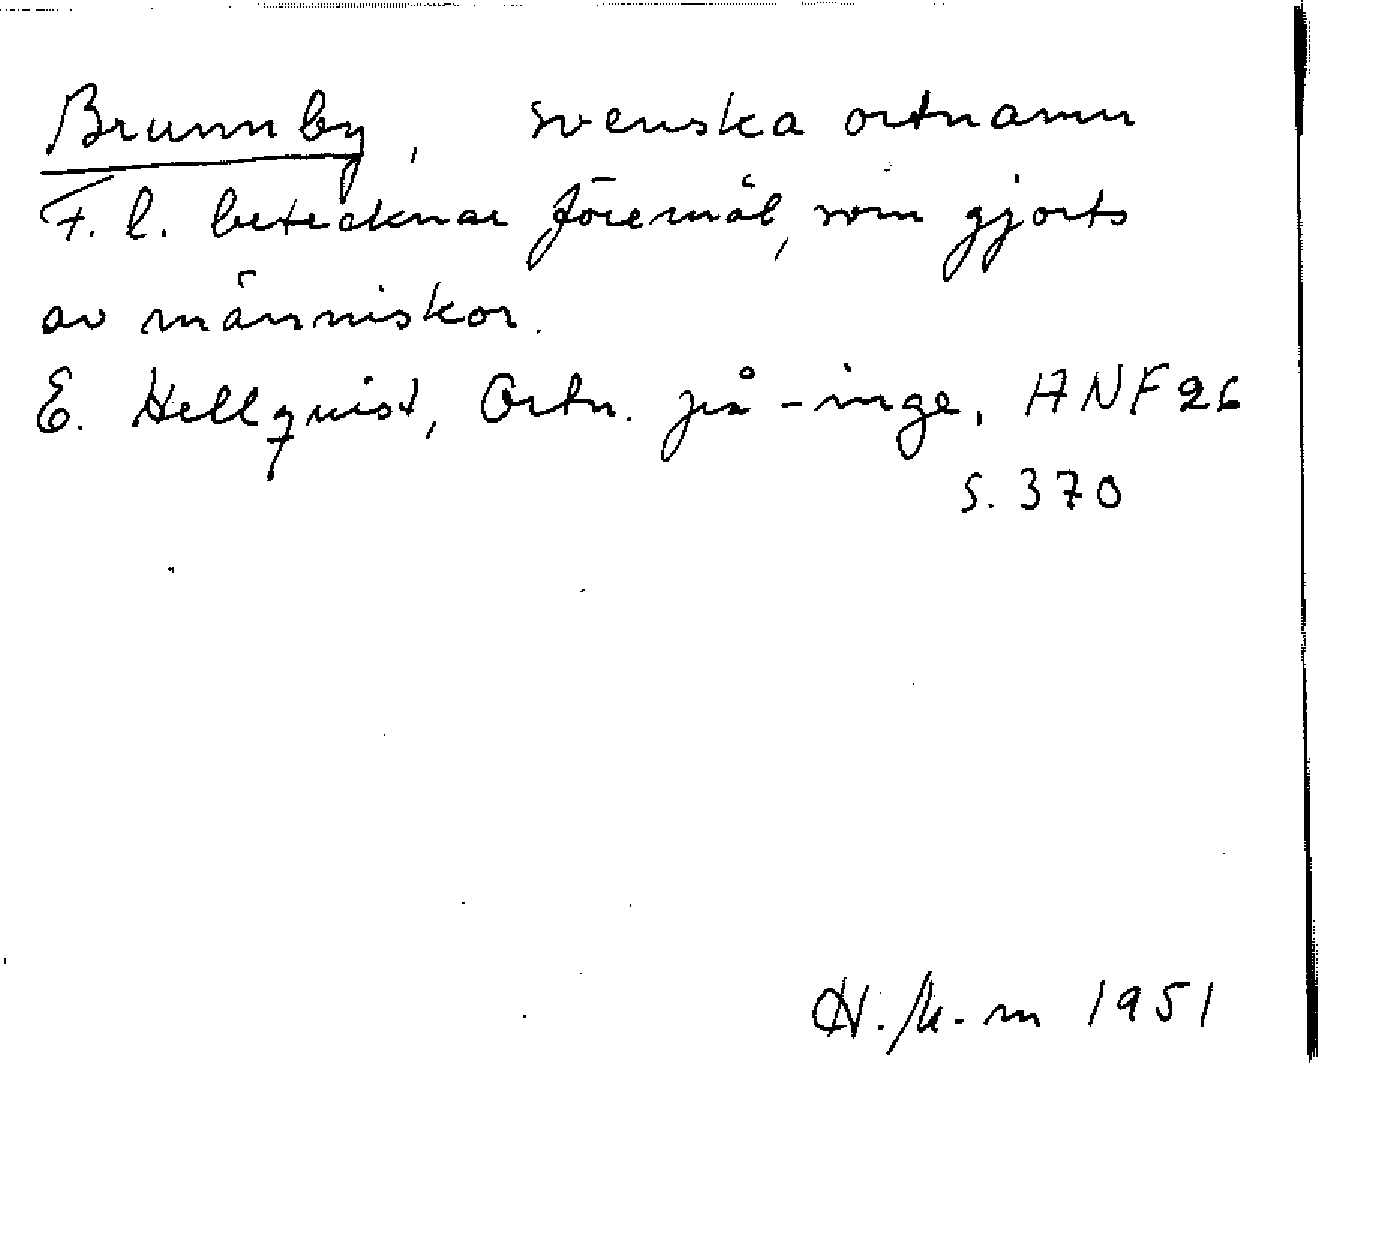 Brunnby, svenska ortnamn
F. l. betecknar föremål, som gjorts
av människor.
E. Hellquist, Ortn. på -inge, ANF 26
s. 370
1951